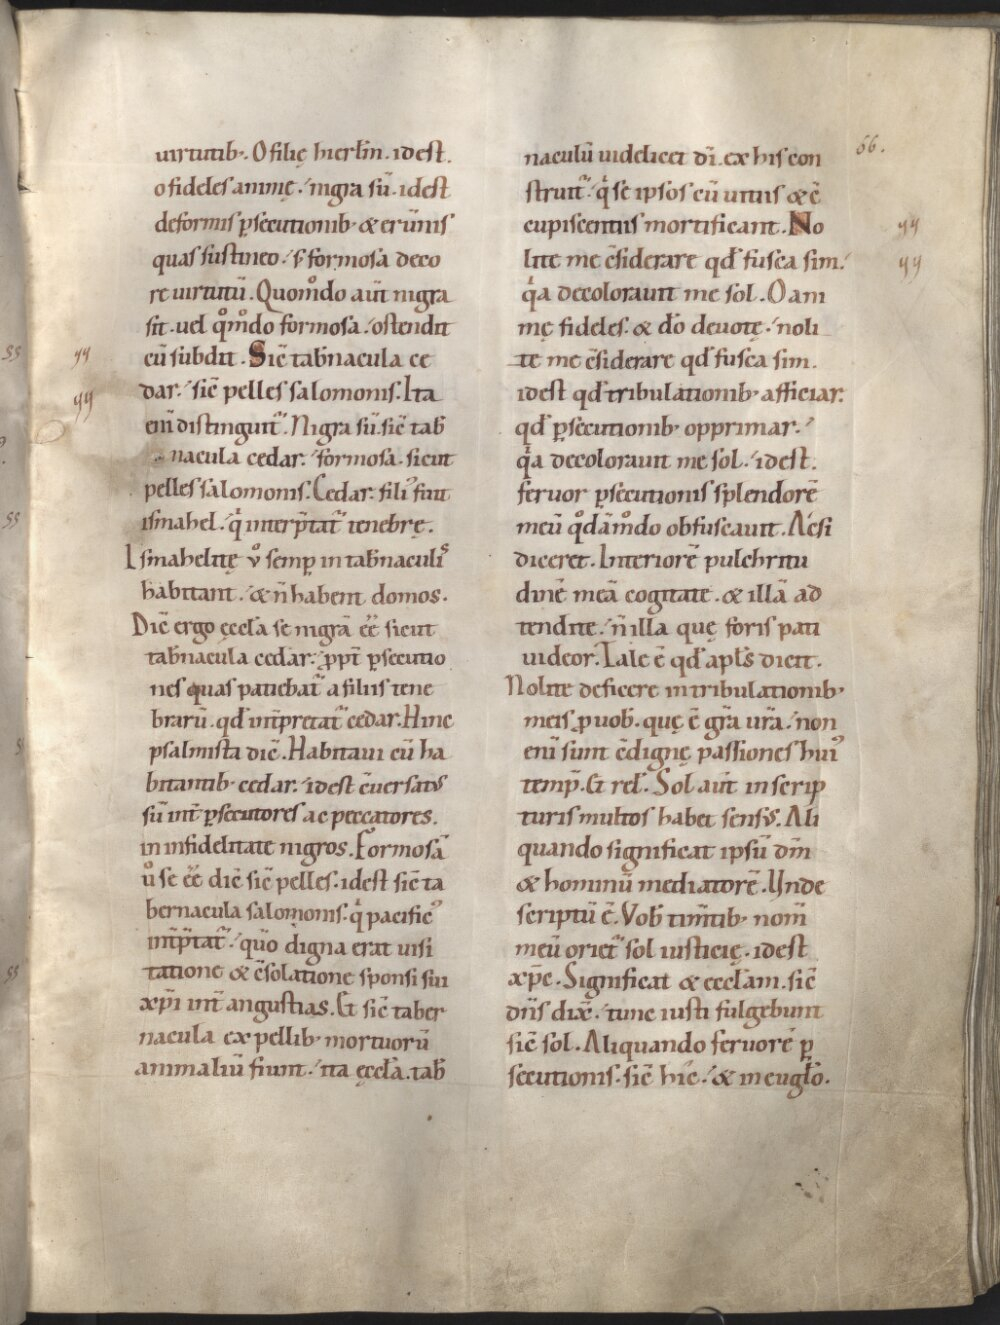 66.
uirtutib. O filię hierl̄m. idest.
o fideles animę. nigra sū. idest
deformis psecutionib. & erūnis
quas sustineo. s; formosa deco
re uirtutū. Quom̊do aūt nigra
sit. uel q̊m̊do formosa. ostendit
cū subdit. Sic̄ tab̄nacula ce
dar. sic̄ pelles salomonis. Ita
eni̅ distinguit᷑. Nigra sū. sic̄ tab̄
nacula cedar. formosa. sicut
pelles salomonis. Cedar. fili᷒ fuit
ismahel. q interp̄tat᷑ tenebrę.
Ismahelitę ů semp̱ in tab̄naculis
habitant. & n̄ habent domos.
Dic̄ ergo ęccl̄a se nigrā eē sicut
tab̄nacula cedar. p̱pt̄ p̱secutio
nes quas patiebat᷑ a filiis tene
brarū. qd̄ int̄pretat᷑ cedar. Hinc
psalmista dic̄. Habitaui cū ha
bitantib. cedar. idest c̄uersatus
sū int̄ p̱secutores ac peccatores.
in infidelitate nigros. Formosā
ů se eē dic̄ sic̄ pelles. idest sic̄ ta
bernacula salomonis. q pacific᷒
int̄p̄tat᷑. quō digna erat uisi
tatione & c̄solatione sponsi sui
xp̄i int̄ angustias. Et sic̄ taber
nacula ex pellib. mortuorū
animaliū fiunt. ita ęccl̄a. tab̄
naculū uidelicet dī. ex his con
struit᷑. q se ipsos cū uitiis & c̄
cupiscentiis mortificant. No
lite me c̄siderare qd̄ fusca sim.
qa decolorauit me sol. O ani
mę fideles. & dō deuotę. noli
te me c̄siderare qd̄ fusca sim.
idest qd̄ tribulationib. afficiar.
qd̄ p̱secutionib. opprimar.
qa decolorauit me sol. idest.
feruor p̱secutionis splendorē
meū q̊dām̊do obfuscauit. Ac si
diceret. Interiorē pulchritu
dinē meā cogitate. & illā ad
tendite. n̄ illa quę foris pati
uideor. Tale ē qd̄ apl̄s dicit.
Nolite deficere in tribulationib.
meis p̱ uob. quę ē gl̄a ur̄a. non
eni̅ sunt c̄dignę passiones hui᷒
temp̱. Et rel̄. Sol aūt in scrip
turis multos habet sensus. Ali
quando significat ipsū dn̄m
& hominū mediatorē. Unde
scriptū ē. Vob tim̄tib. nom̄
meū oriet᷑ sol iusticię. idest
xp̄c. Significat & eccl̄am. sic̄
dn̄s dix̄. tunc iusti fulgebunt
sic̄ sol. Aliquando feruorē p̱
secutionis. sic̄ hic̄. & in eugl̄o.